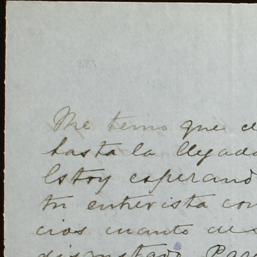 Me temo que d
hasta la llegada
Estoy esperand
tu entrevista con
cios cuanto de
disgustado. Para